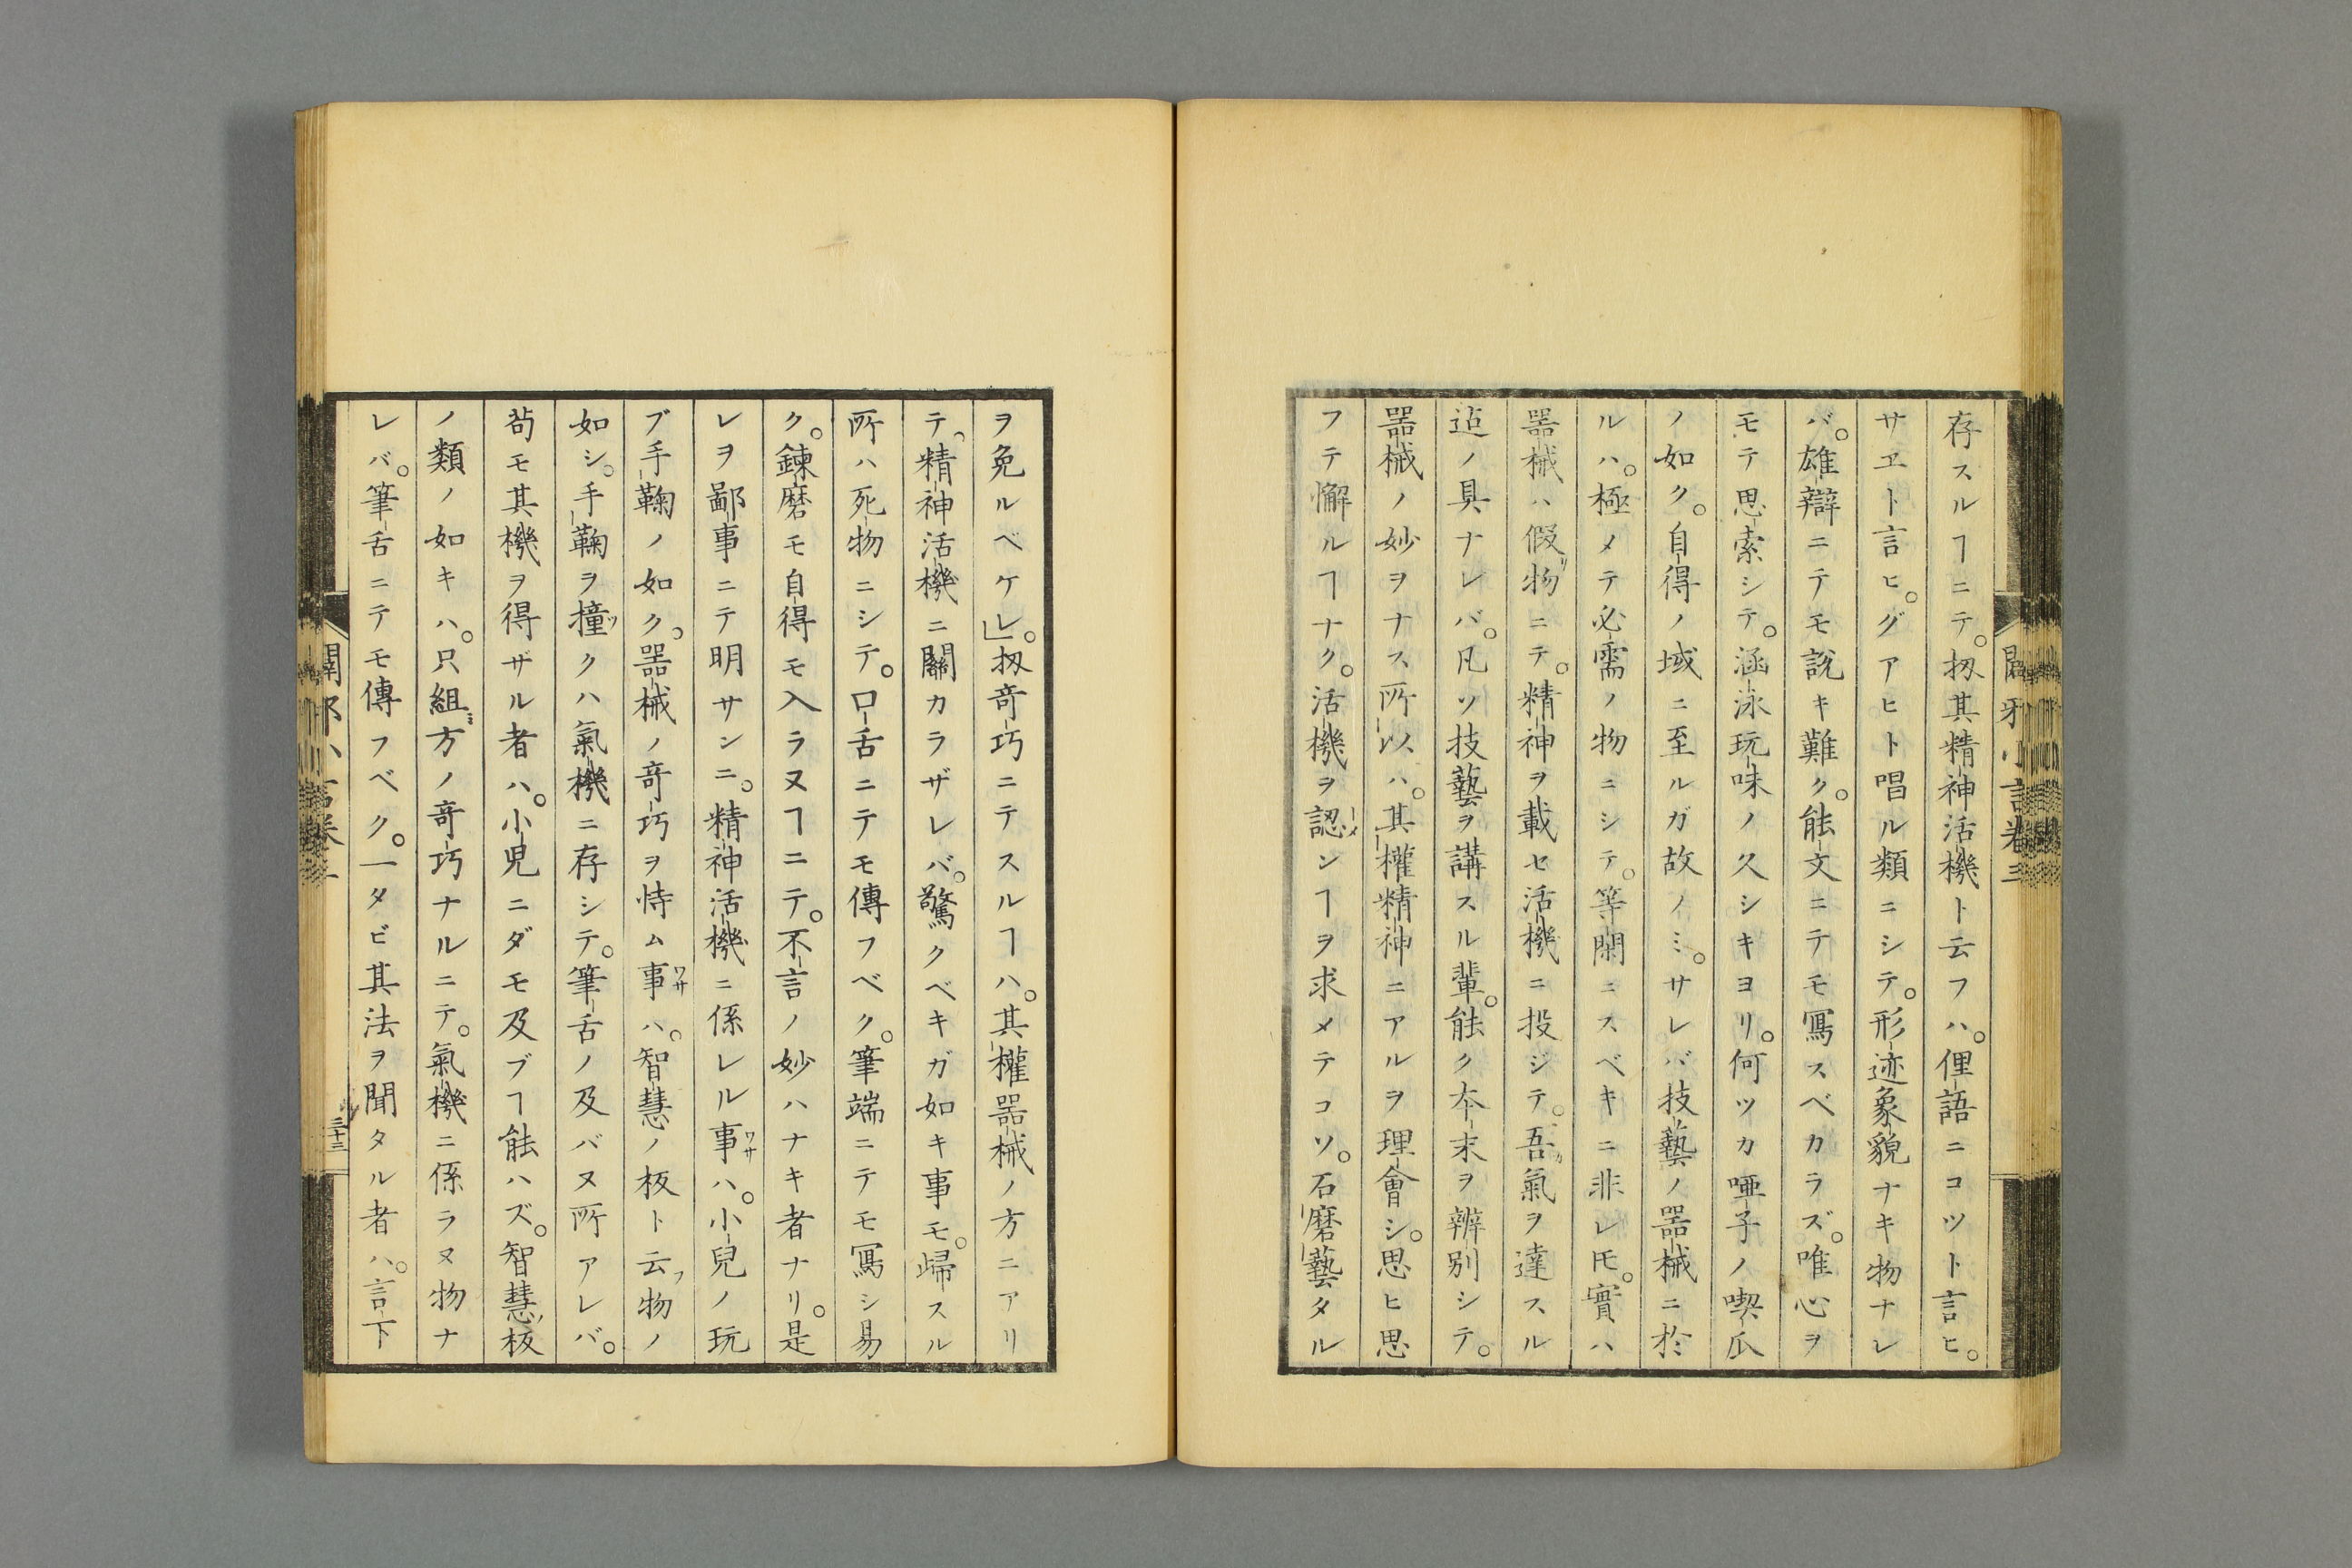 存スルヿニテ。扨其精神活機ト云フハ。俚語ニコツト言ヒ。
サヱト言ヒ。グアヒト唱ル類ニシテ。形迹象貌ナキ物ナレ
バ。雄辯ニテモ説キ難ク。能文ニテモ寫スベカラズ。唯心ヲ
モテ思索シテ。涵泳玩味ノ久シキヨリ。何ツカ唖子ノ喫瓜
ノ如ク。自得ノ域ニ至ルガ故ノミ。サレバ技藝ノ噐械ニ於
ルハ。極メテ必需ノ物ニシテ。等閑ニスベキニ非レ𪜈。實ハ
噐械ハ假リ物ニテ。精神ヲ載セ活機ニ投ジテ。吾ガ氣ヲ達スル
迠ノ具ナレバ。凡ソ技藝ヲ講スル輩。能ク夲末ヲ辨別シテ。
噐械ノ妙ヲナス所以ハ。其權精神ニアルヲ理會シ。思ヒ思
フテ懈ルヿナク。活機ヲ認メンヿヲ求メテコソ。石磨藝タル
ヲ免ルベケレ」扨竒巧ニテスルヿハ。其權噐械ノ方ニアリ
テ、精神活機ニ關カラザレバ。驚クベキガ如キ事モ。歸スル
所ハ死物ニシテ。口舌ニテモ傳フベク。筆端ニテモ寫シ易
ク。鍊磨モ自得モ入ラヌヿニテ。不言ノ妙ハナキ者ナリ。是
レヲ鄙事ニテ明サンニ。精神活機ニ係レル事ワサハ。小兒ノ玩
ブ手鞠ノ如ク。噐械ノ竒巧ヲ恃ム事ワサハ。智慧ノ板ト云フ物ノ
如シ。手鞠ヲ撞ツクハ氣機ニ存シテ。筆舌ノ及バヌ所アレバ。
苟モ其機ヲ得ザル者ハ。小児ニダモ及ブヿ能ハズ。智慧ノ板
ノ類ノ如キハ。只組ミ方ノ竒巧ナルニテ。氣機ニ係ラヌ物ナ
レバ。筆舌ニテモ傳フベク。一タビ其法ヲ聞タル者ハ。言下
三十三